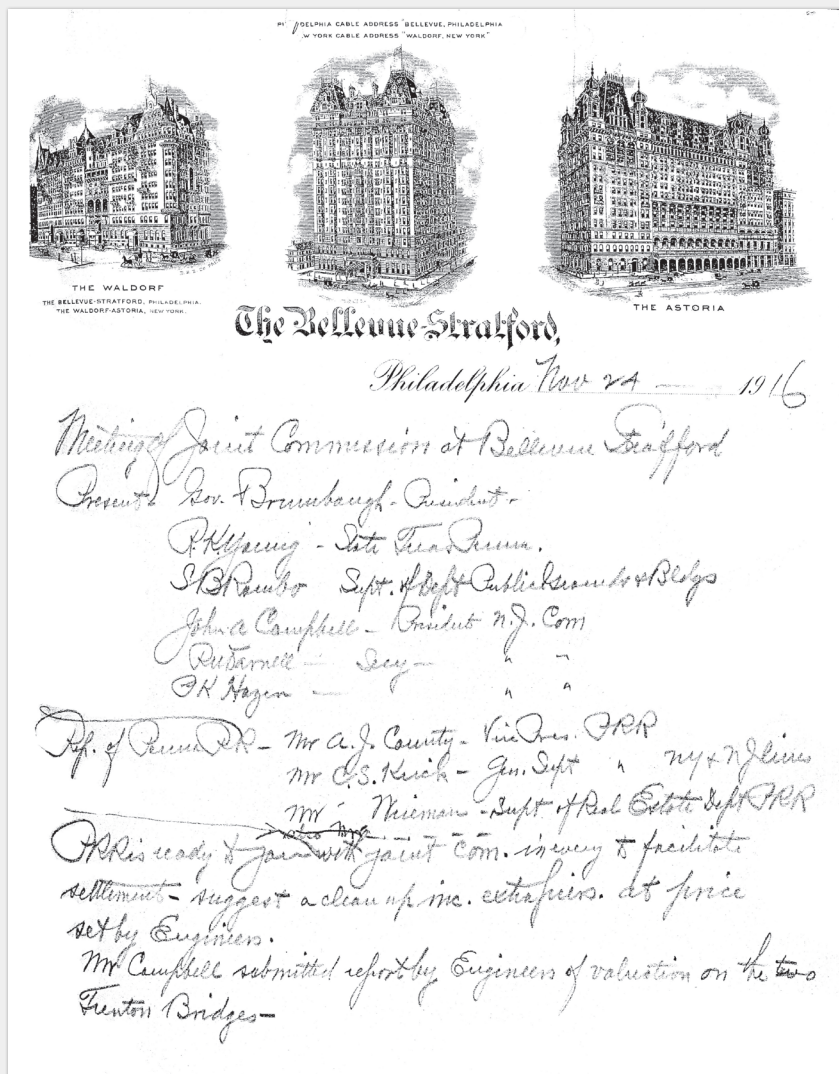 DELPHIA CABLE ADDRESS "BELLEVUE, PHILADELPHIA
W YORK CABLE ADDRESS "WALDORF, NEW YORK"
THE WALDORF
THE BELLEVUE-STRATFORD, PHILADELPHIA.
THE WALDORF-ASTORIA, NEW YORK.
THE ASTORIA
The Bellevue-Stratford,
Philadelphia Nov 24 1916
Meeting of Joint Commission at Bellevue Strafford
Present Gov. Brumbaugh - President -
R.K. Young - State Treas Penna.
S B Rambo Supt. of Dept Public Grounds & Bldgs
John A Campbell - President N.J. Com
Darnell - Secy - " "
F K Hazen - " "
Rep. of Penna RR - Mr A. J. County - Vice Pres. PRR
Mr C. S. Krick - Gen. Supt " NY & NJ lines
Mr Wieman - Supt of Real Estate Dept PRR
PRR is ready to join with joint com. in way to facilitate
settlement - suggest a clean up inc. extra piers. at price
set by Engineers.
Mr Campbell submitted report by Engineers of valuation on the two
Trenton Bridges -